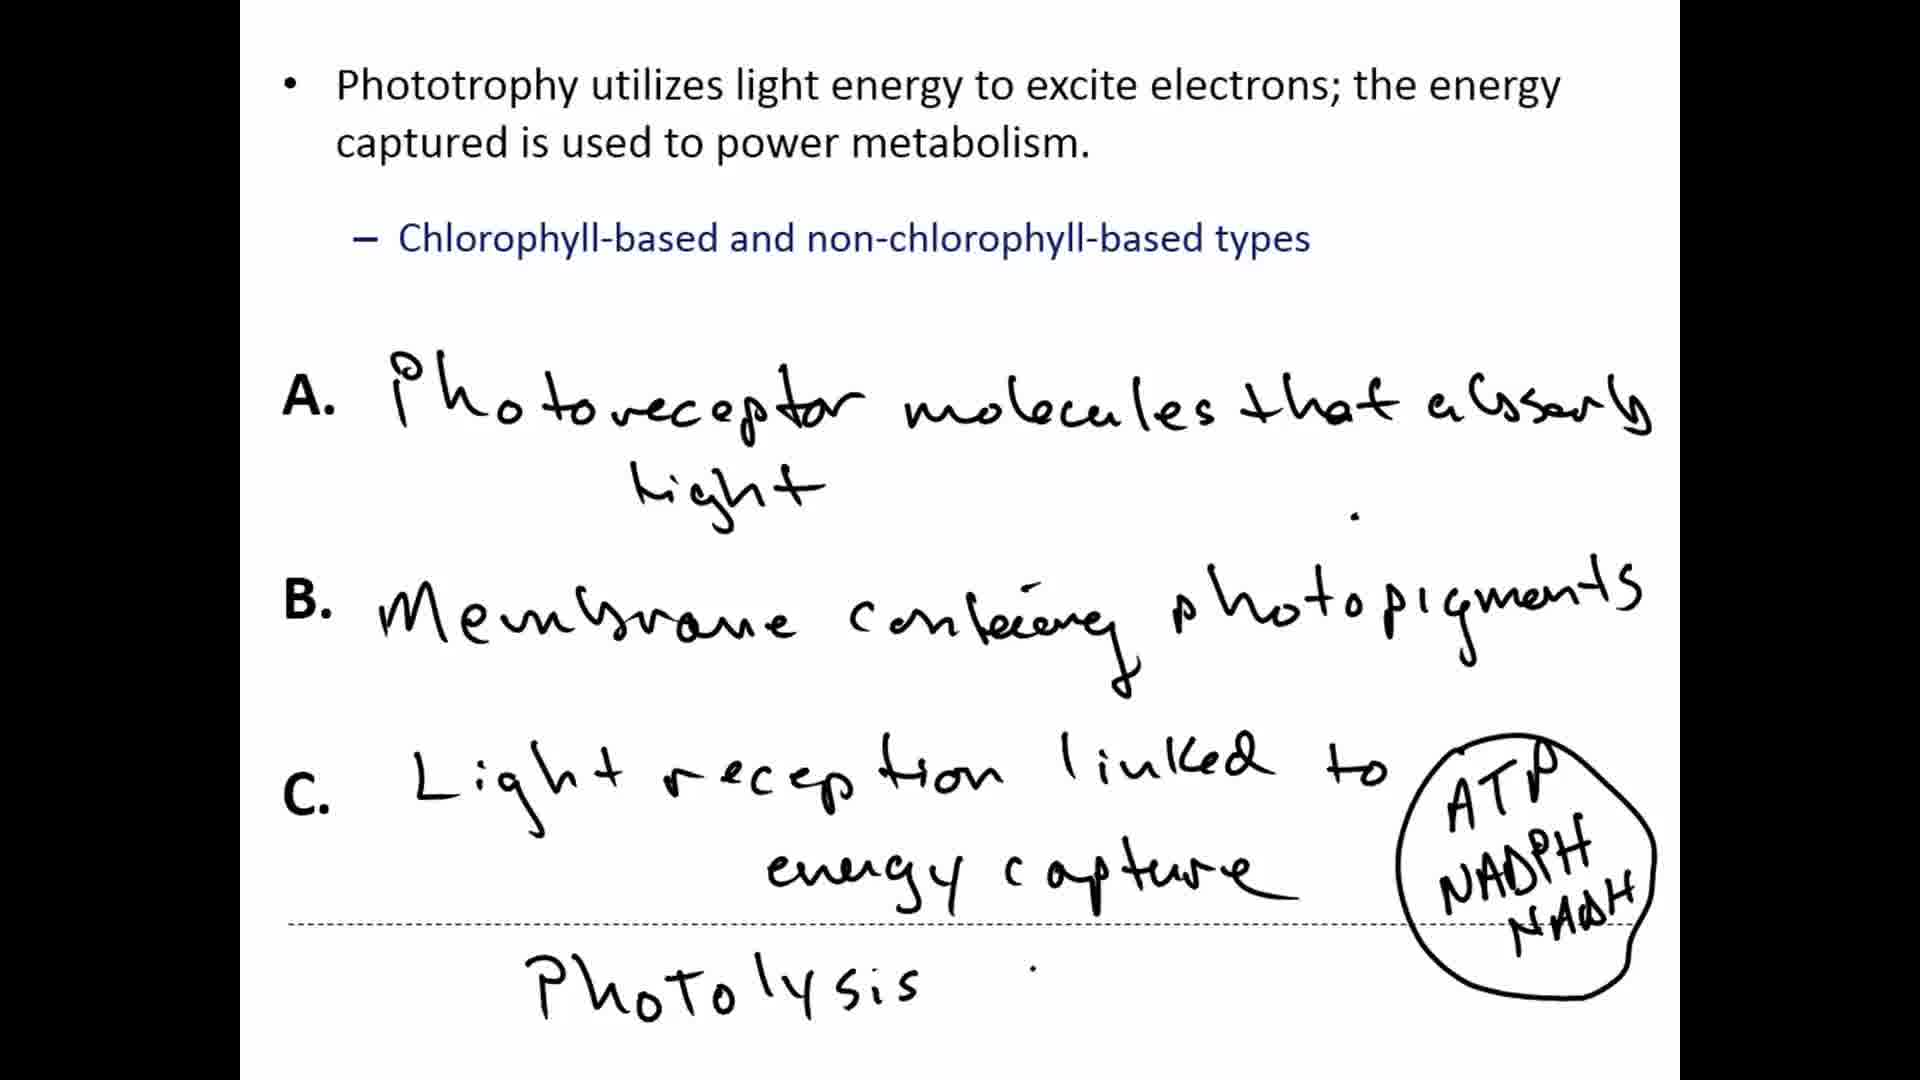 • Phototrophy utilizes light energy to excite electrons; the energy
captured is used to power metabolism.
– Chlorophyll-based and non-chlorophyll-based types
A. Photoreceptor molecules that absorb
light
B. Membrane containing photopigments
C. Light reception linked to
energy capture
ATP
NADPH
NADH
Photolysis